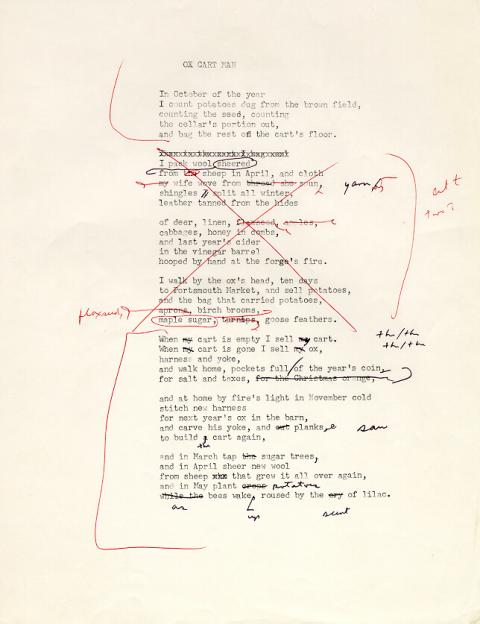 OX CART MAN
In October of the year
I count potatoes dug from the brown field,
counting the seed, counting
the cellar's portion out,
and bag the rest on the cart's floor.
I pack wool sheered
from the sheep in April, and cloth
my wife wove from thread she spun, yarn
shingles split all winter,
leather tanned from the hides
of deer, linen, flaxseed, apples,
cabbages, honey in combs,
and last year's cider
in the vinegar barrel
hooped by hand at the forge's fire.
I walk by the ox's head, ten days
to Portsmouth Market, and sell potatoes,
and the bag that carried potatoes,
flaxseed, aprons, birch brooms,
maple sugar, turnips, goose feathers.
th/th
th/th
When my cart is empty I sell my cart.
When my cart is gone I sell my ox,
harness and yoke,
and walk home, pockets full/of the year's coin,
for salt and taxes, for the Christmas orange,
and at home by fire's light in November cold
stitch new harness
for next year's ox in the barn,
and carve his yoke, and cut planks, saw
to build a cart again,
the
and in March tap the sugar trees,
and in April sheer new wool
from sheep xxx that grew it all over again,
and in May plant potatoes
while the bees wake, roused by the cry of lilac.
as up scent